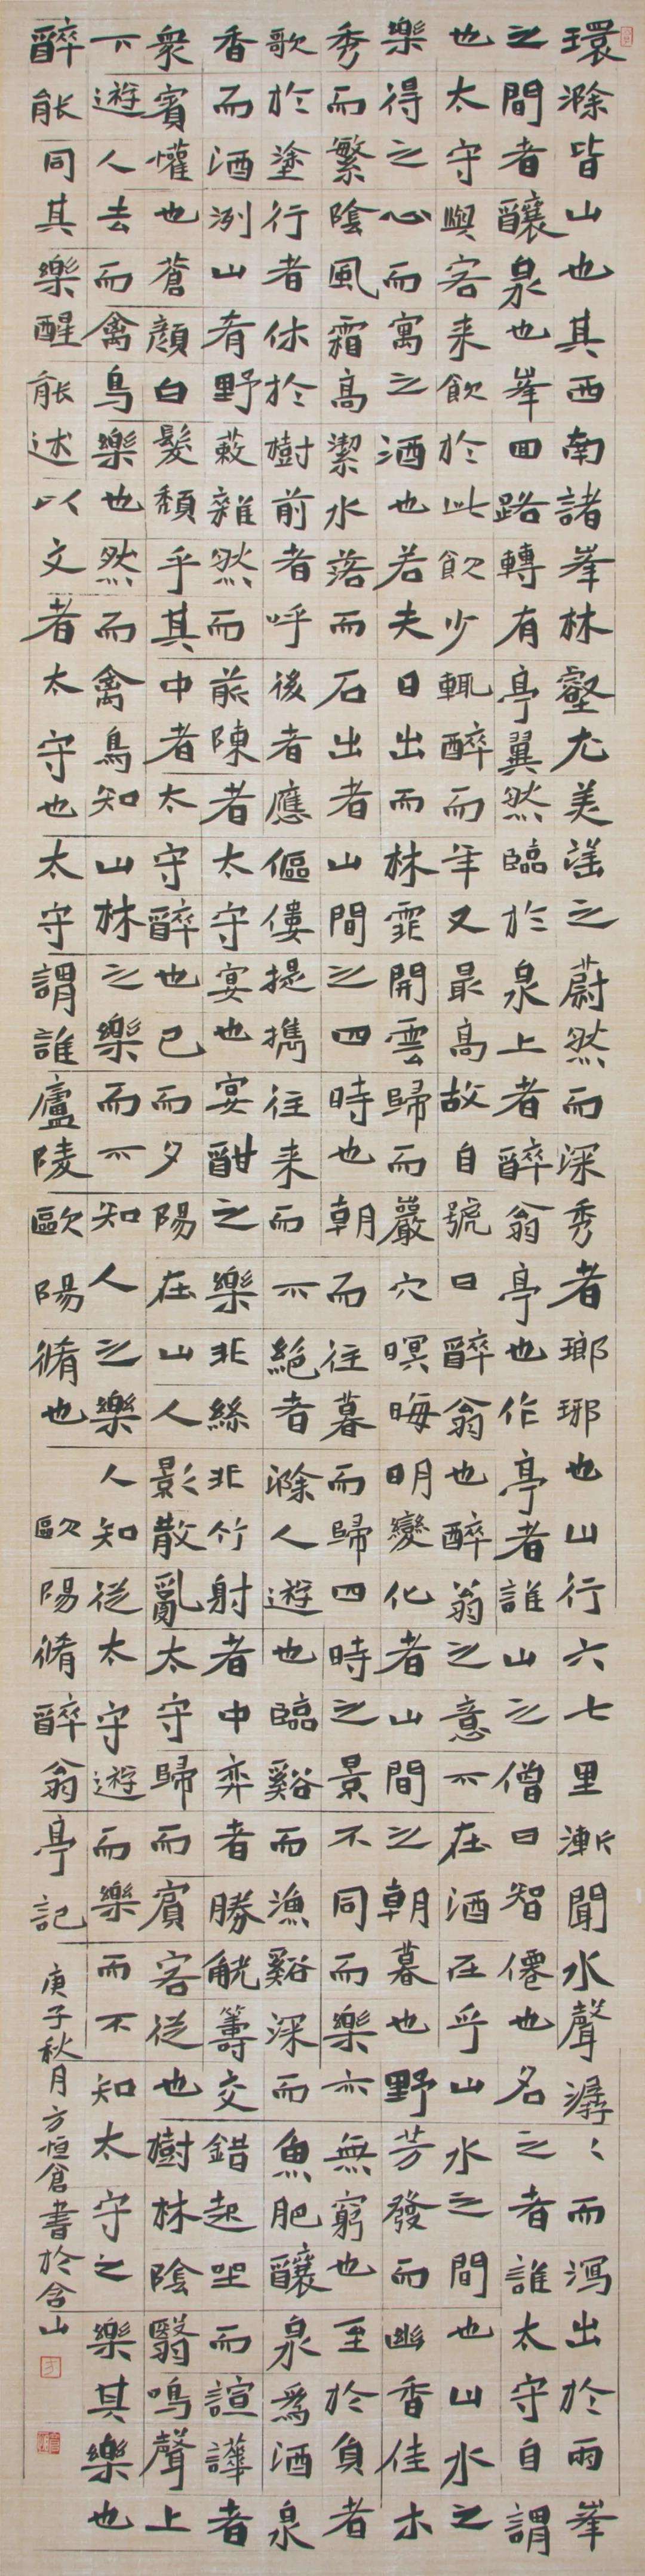 環滁皆山也其西南諸峯林壑尤美望之蔚然而深秀者瑯琊也山行六七里漸聞水聲潺〻而瀉出於兩峯
之間者釀泉也峯回路轉有亭翼然臨於泉上者醉翁亭也作亭者誰山之僧曰智僊也名之者誰太守自謂
也太守與客来飲於此飲少輒醉而年又最高故自號曰醉翁也醉翁之意不在酒在乎山水之間也山水之
樂得之心而寓之酒也若夫日出而林霏開雲歸而巖穴暝晦明變化者山間之朝暮也野芳發而幽香佳木
秀而繁陰風霜高潔水落而石出者山間之四時也朝而往暮而歸四時之景不同而樂亦無窮也至於負者
歌於塗行者休於樹前者呼後者應傴僂提攜往来而不絕者滁人遊也臨谿而漁谿深而魚肥釀泉爲酒泉
香而酒洌山肴野蔌雜然而前陳者太守宴也宴酣之樂非絲非竹射者中弈者勝觥籌交錯起坐而諠譁者
衆賓懽也蒼顏白髮頹乎其中者太守醉也已而夕陽在山人影散亂太守歸而賓客從也樹林陰翳鳴聲上
下遊人去而禽鳥樂也然而禽鳥知山林之樂而不知人之樂人知從太守遊而樂而不知太守之樂其樂也
醉能同其樂醒能述以文者太守也太守謂誰廬陵歐陽脩也 歐陽脩醉翁亭記 庚子秋月方恒倉書於含山